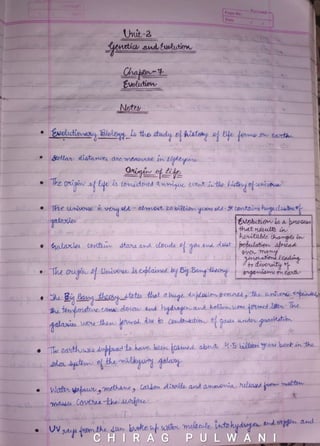 Page No.
Date
Unit-2
Genetics and Evolution
Chapter-7
Evolution
Notes
• Evolutionary Biology is the study of history of life forms on earth
• Stellar distances are measured in lightyears
Origin of life
• The origin of life is considered a unique event in the history of universe
• The universe is very old - almost 20 billion years old. It contains huge clusters of
galaxies
Evolution is a process
that results in
heritable changes in
population spread
over many
generations leading
to diversity of
organisms on earth
• Galaxies contain stars and clouds of gas and dust
• The origin of Universe is explained by Big Bang theory
• The Big Bang Theory states that a huge explosion occurred, the universe expanded,
the temperature came down and hydrogen and helium were formed later. The
galaxies were then formed due to condensation of gases under gravitation
• The earth was supposed to have been formed about 4.5 billion years back in the
solar system of the milkyway galaxy
• Water vapour, methane, carbon dioxide and ammonia released from molten
mass covered the surface
• UV rays from the sun broke up water molecule into hydrogen and oxygen and
CHIRAG PULWANI